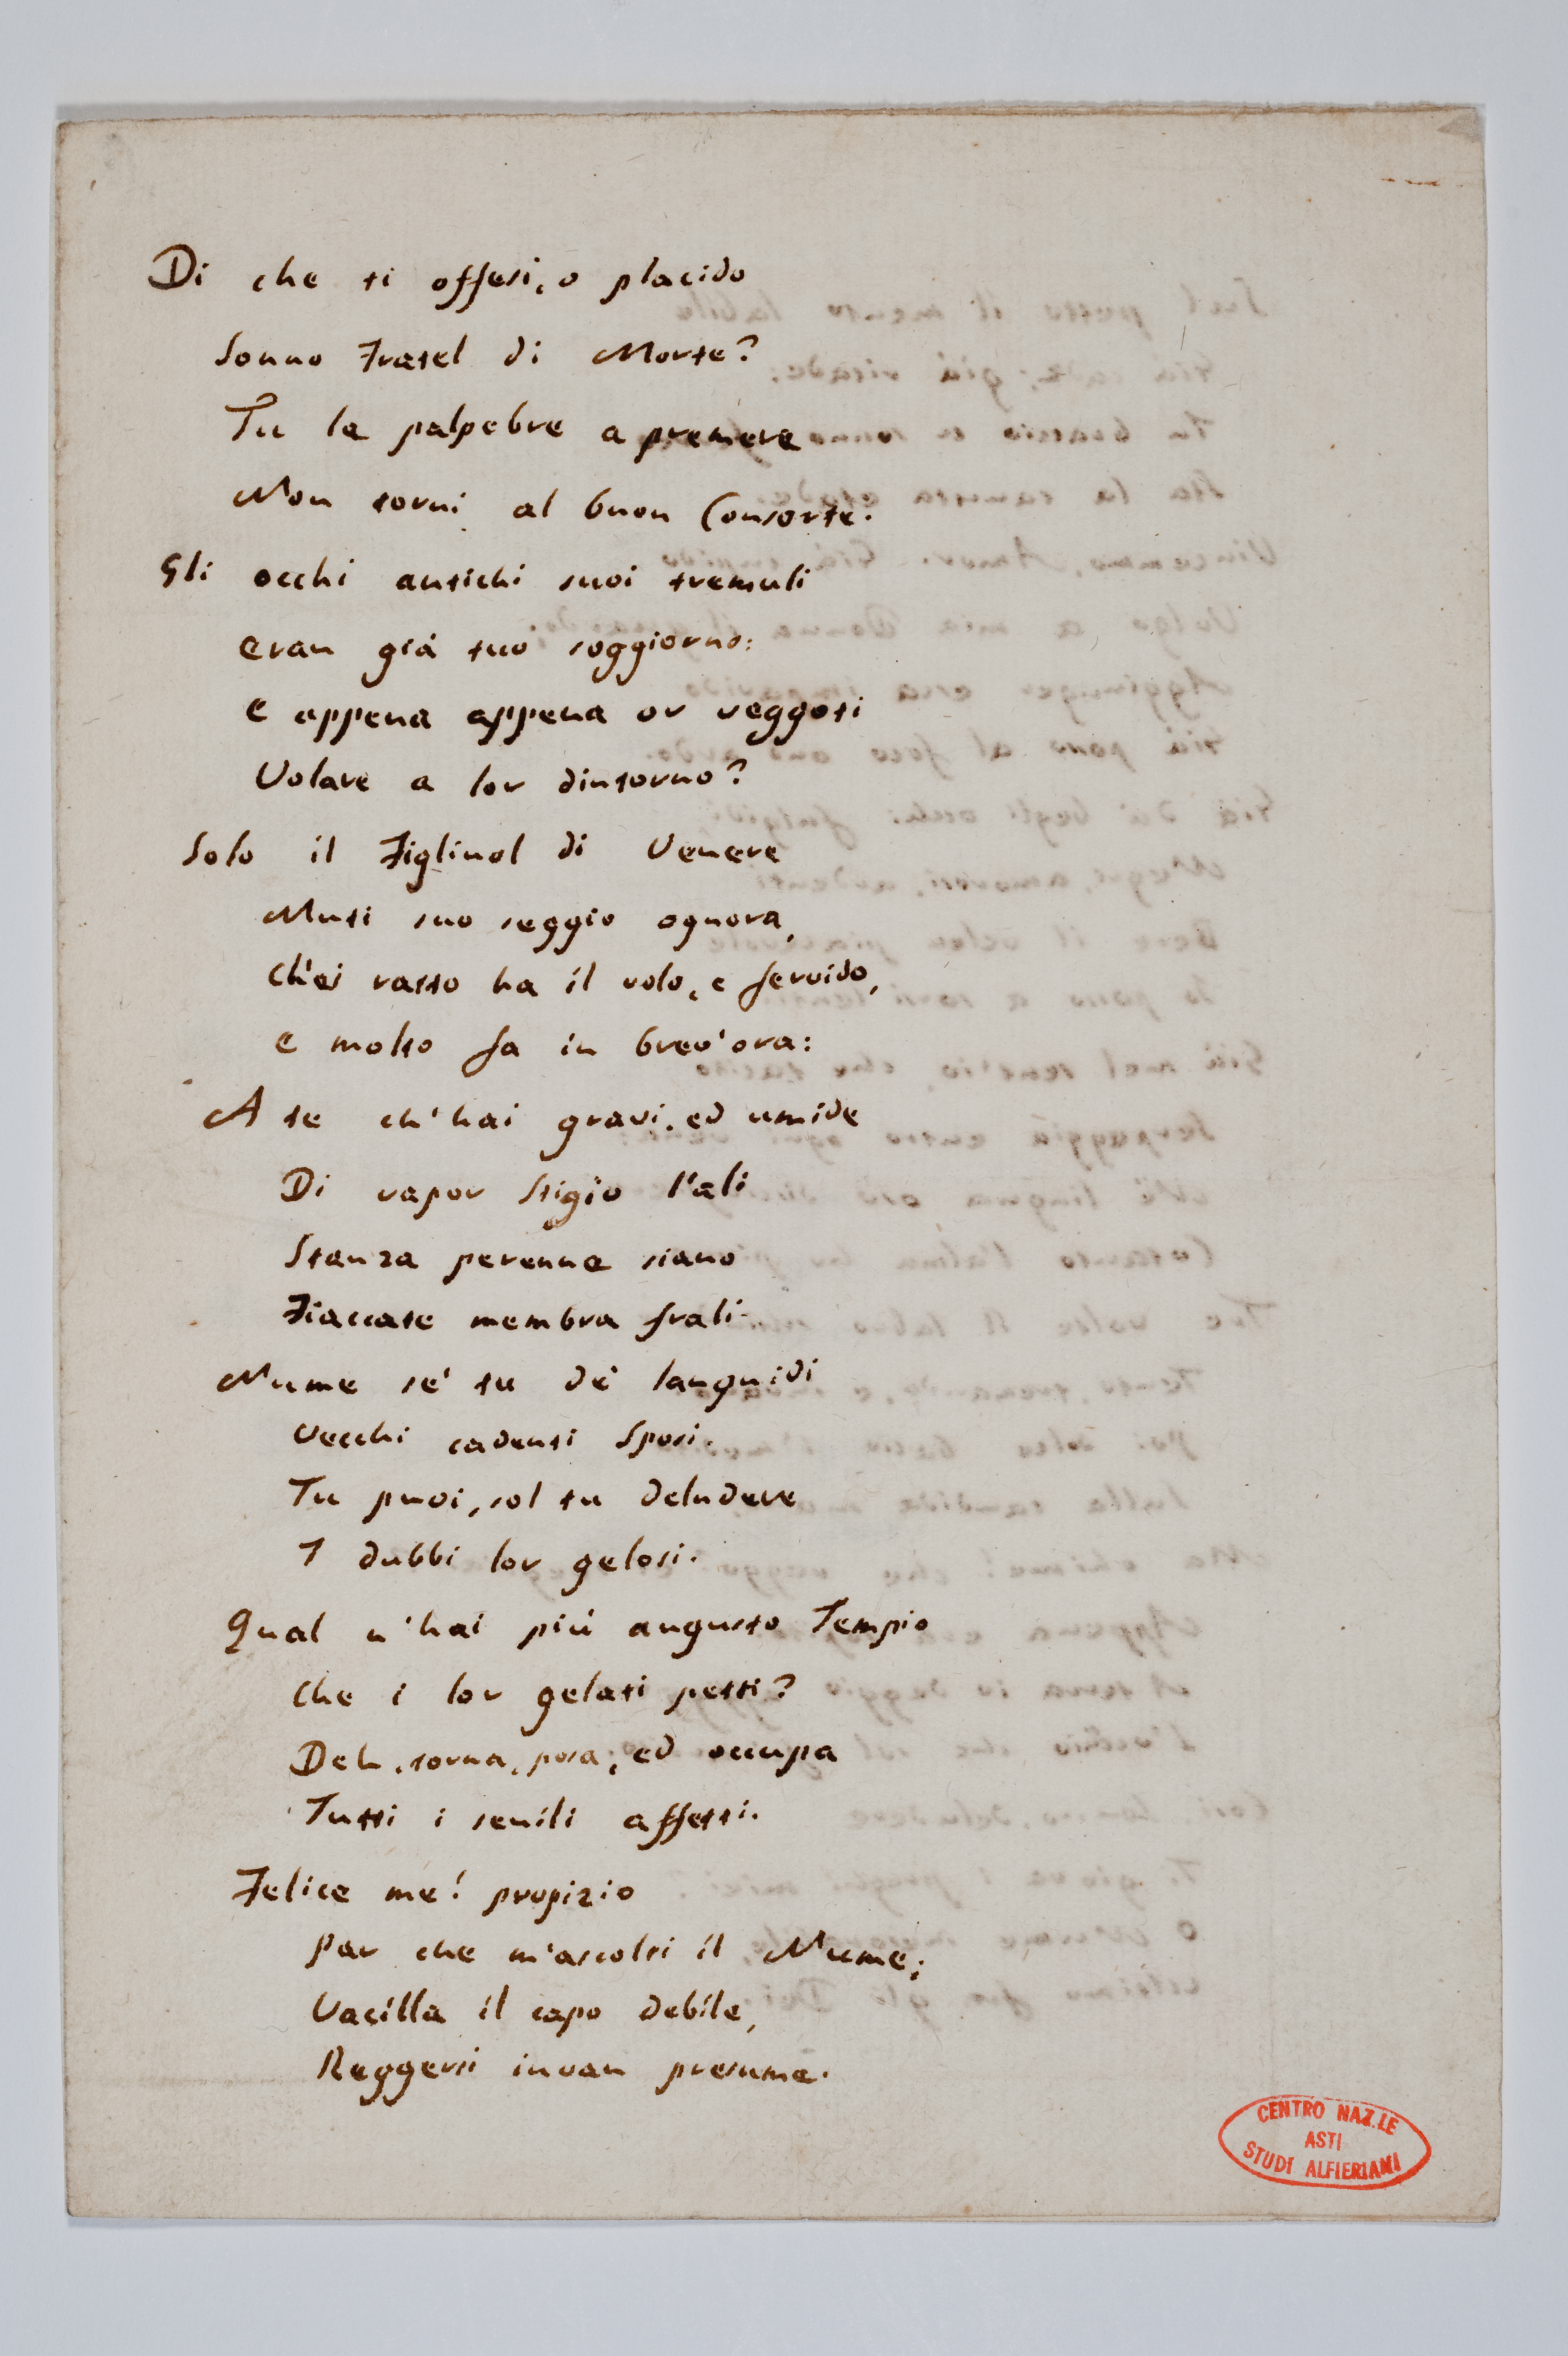 Di che ti offesi, o placido
Sonno Fratel di Morte?
Tu le palpebre a premere
Non torni al buon Consorte.
Gli occhi antichi suoi tremuli
eran già tuo soggiorno:
e appena appena or veggoti
Volare a lor dintorno?
Solo il Figliuol di Venere
Muti suo seggio ognora,
Ch'ei ratto ha il volo, e fervido,
e molto fa in brev'ora:
A te ch'hai gravi, ed umide
Di vapor Stigio l'ali
Stanza perenne siano
Fiaccate membra frali.
Nume se' tu de' languidi
Vecchi cadenti Sposi.
Tu puoi, sol tu deludere
I dubbi lor gelosi.
Qual n'hai più augusto Tempio
Che i lor gelati petti?
Deh, torna, posa, ed occupa
Tutti i senili affetti.
Felice me! propizio
Par che m'ascolti il Nume;
Vacilla il capo debile,
Reggersi invan presume.
CENTRO NAZ.LE
ASTI
STUDI ALFIERIANI